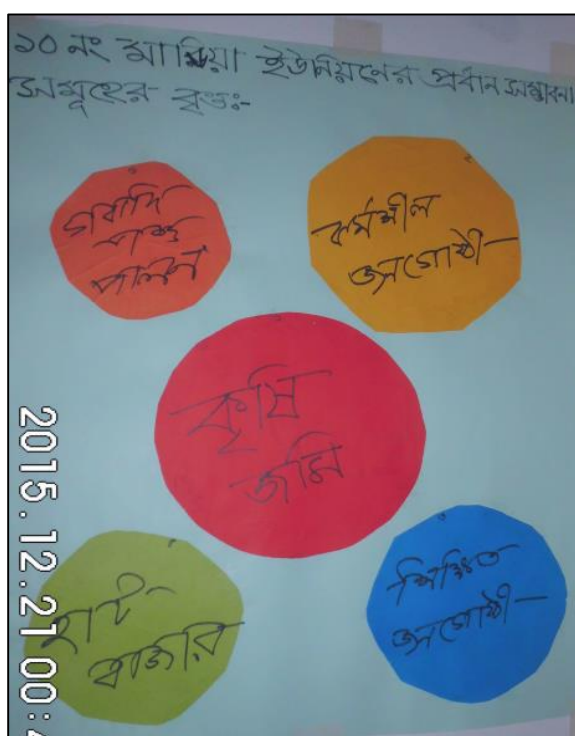 ১০ নং মারিয়া ইউনিয়নের প্রধান সম্ভাবনা
সমূহের বৃত্তঃ-
গবাদি
পশু
পালন
কর্মশীল
জনগোষ্ঠী
কৃষি
জমি
হাট
বাজার
শিক্ষিত
জনগোষ্ঠী
2015.12.21 00: